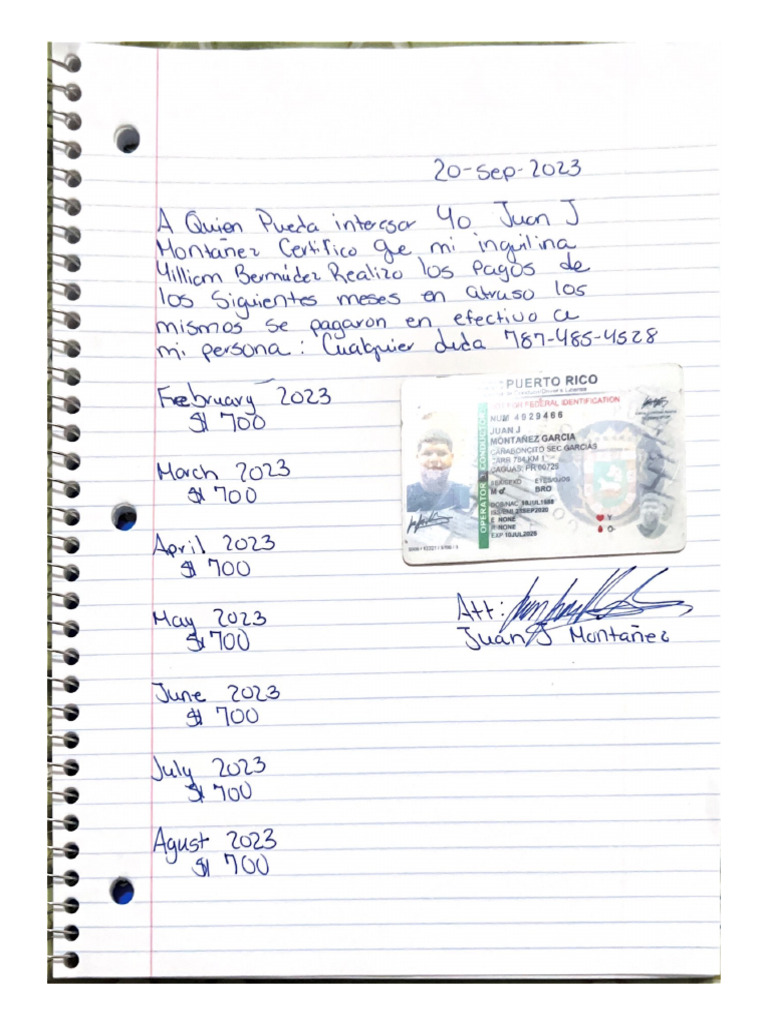 20-Sep-2023
A Quien Pueda interesar Yo Juan J
Montañez Certifico Qe mi inquilina
Yilliam Bermúdez Realizo los Pagos de
los Siguientes meses en atraso los
mismos se pagaron en efectivo a
mi persona: Cualquier duda 787-485-4528
February 2023
$ 700
March 2023
$ 700
April 2023
$ 700
May 2023
$ 700
June 2023
$ 700
July 2023
$ 700
Agust 2023
$ 700
PUERTO RICO
FEDERAL IDENTIFICATION
NUM 4929466
JUAN J
MONTAÑEZ GARCIA
CARABONCITO SEC GARCIAS
CARR 784 KM 1
CAGUAS, PR 00725
M BRO
E NONE
R NONE
EXP 10JUL2026
OPERATOR CONDUCTOR
Att:
Juan J Montañez